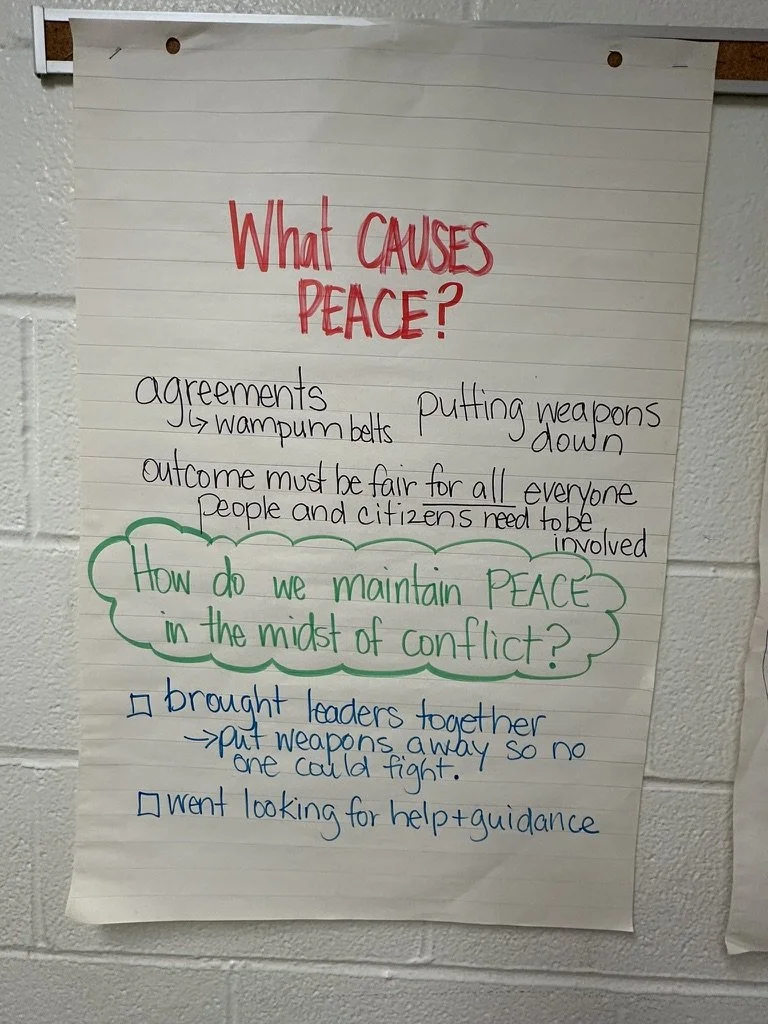 What CAUSES
PEACE?
agreements
↳ wampum belts
putting weapons
down
outcome must be fair for all everyone
people and citizens need to be
involved
How do we maintain PEACE
in the midst of conflict?
□ brought leaders together
→put weapons away so no
one could fight.
□ went looking for help+guidance